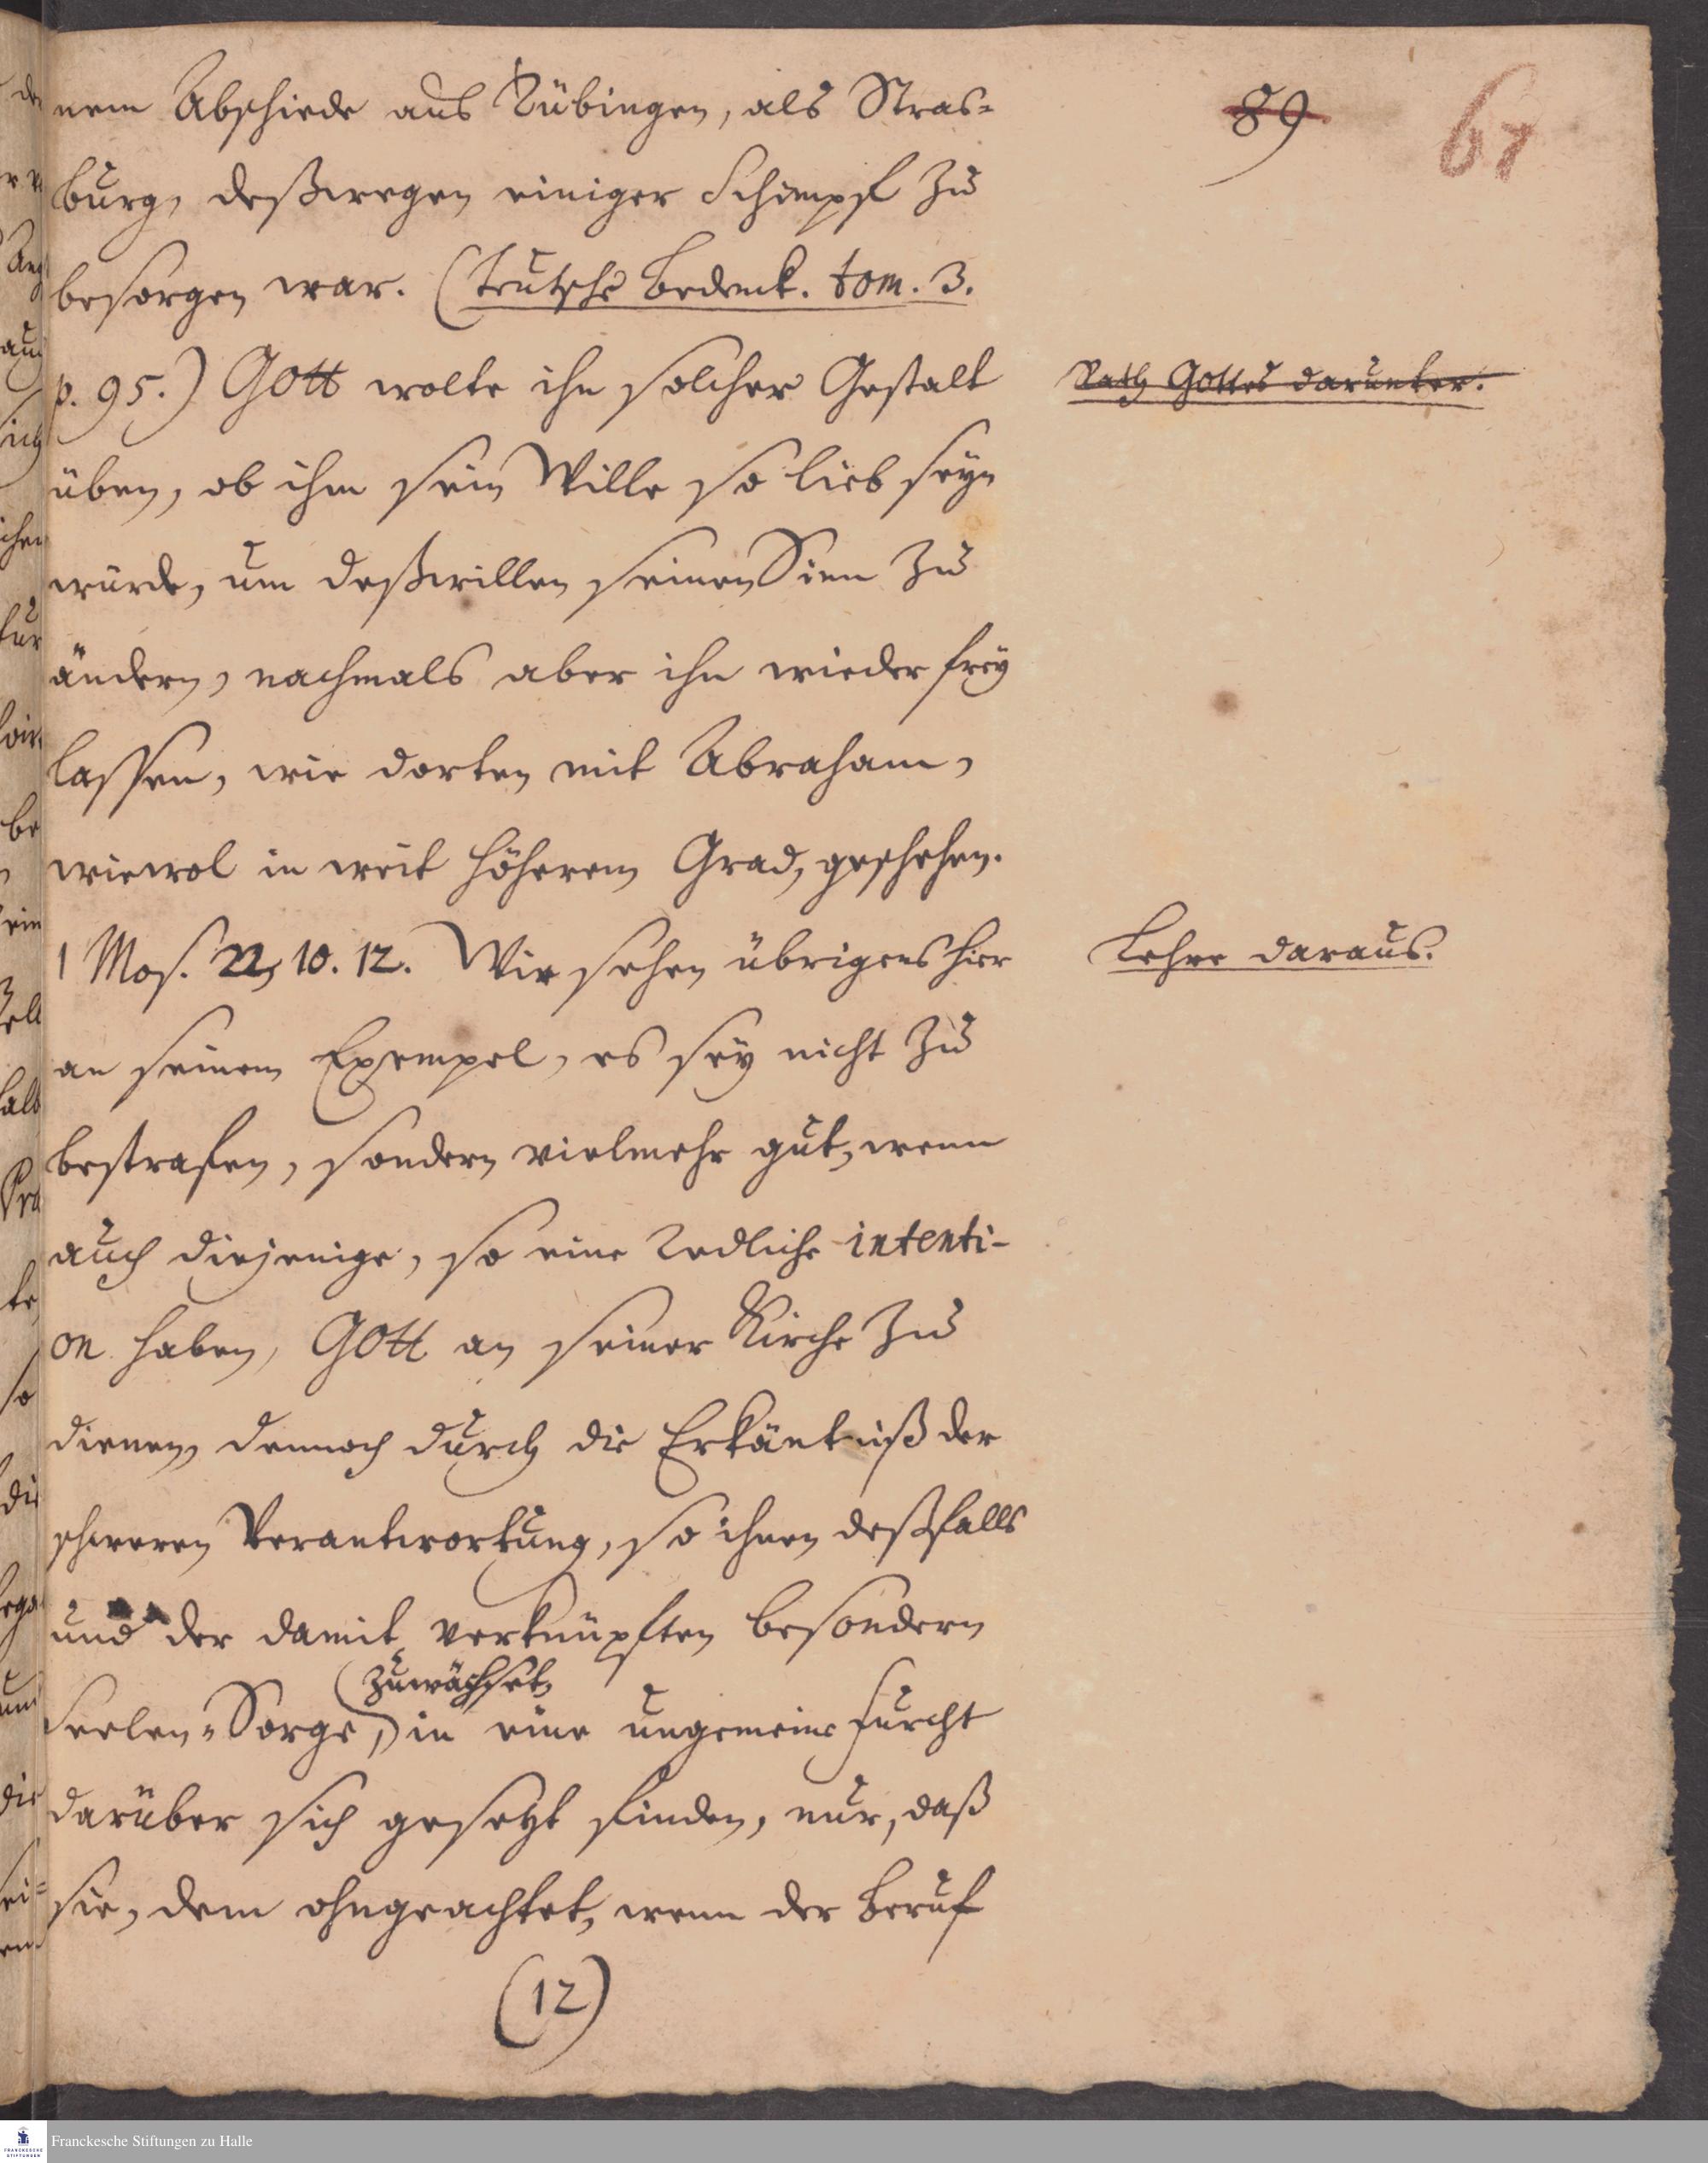 89 67
nem Abschiede aus Tübingen, als Stras-
burg, deßwegen einiger Schimpf zu
besorgen war. (Teutsche Bedenck. tom. 3.
p. 95.) Gott wolte ihn solcher Gestalt
Rath Gottes darunter.
üben, ob ihm sein Wille so lieb seyn
würde, um deßwillen seinen Sinn zu
ändern, nachmals aber ihn wieder frey
lassen, wie dorten mit Abraham,
wiewol in weit höherem Grad, geschehen.
1 Mos. 22, 10. 12. Wir sehen übrigens hier
Lehre daraus.
an seinem Exempel, es sey nicht zu
bestrafen, sondern vielmehr gut, wenn
auch diejenige, so eine redliche intenti-
on haben, GOtt an seiner Kirche zu
dienen, dennoch durch die Erkäntniß der
schweren Verantwortung, so ihnen deßfalls
und der damit verknüpften besondern
zuwächset,
Seelen-Sorge, in eine ungemeine Furcht
darüber sich gesetzt finden, nur, daß
sie, dem ohngeachtet, wenn der Beruf
(12)
Franckesche Stiftungen zu Halle